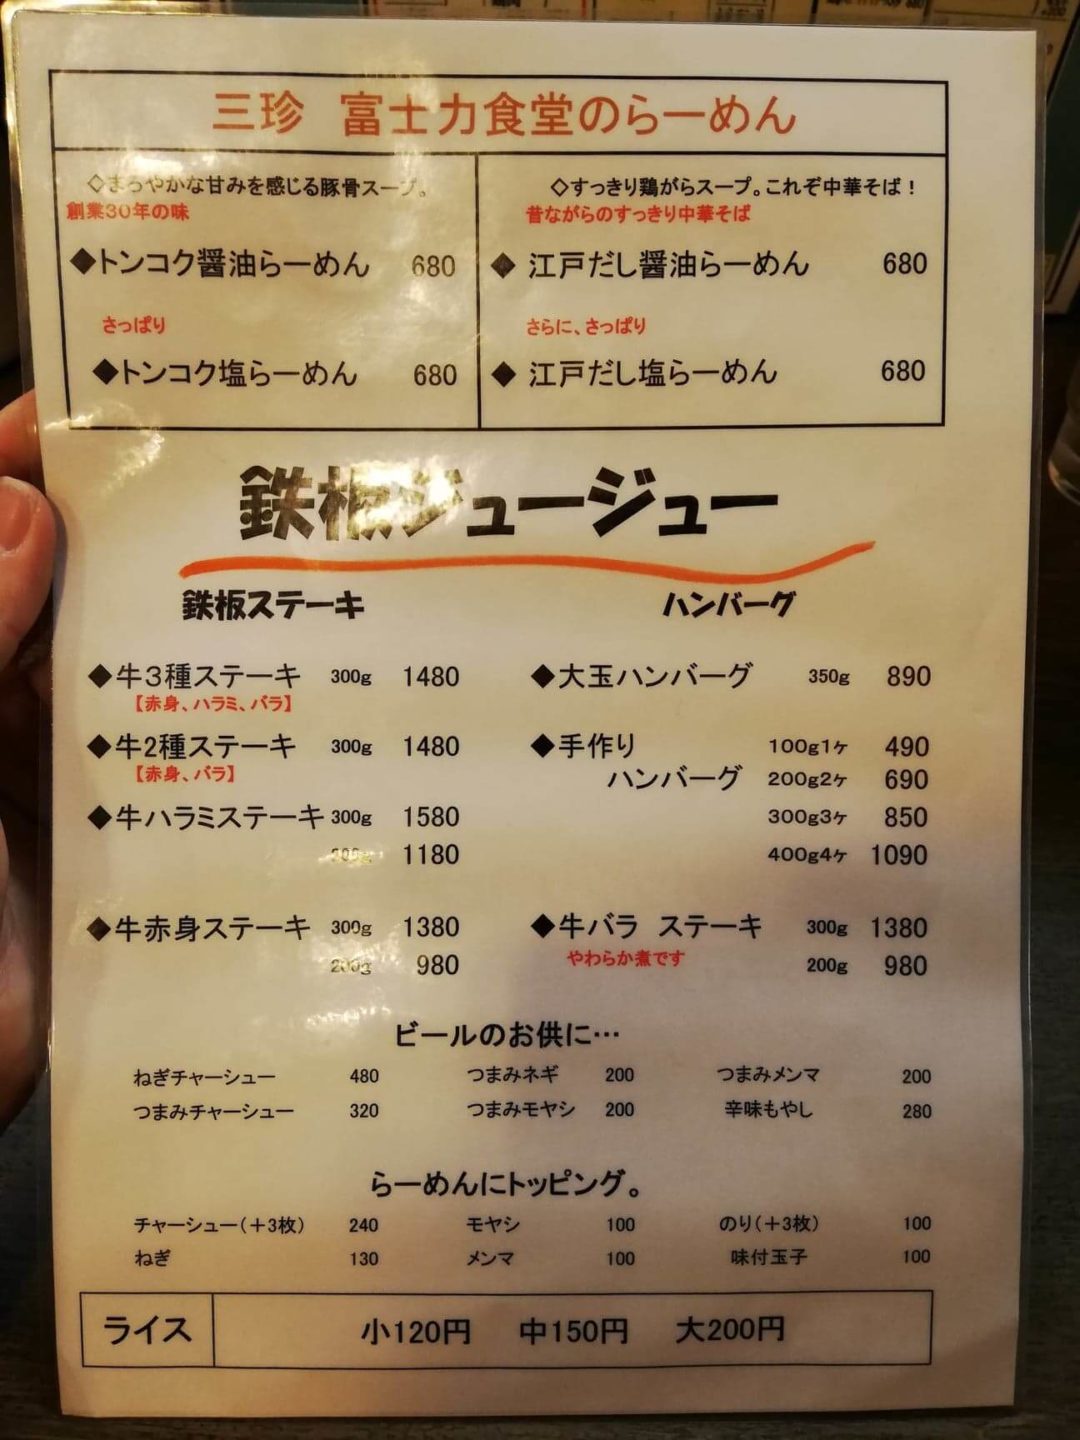 三珍 富士力食堂のらーめん
◇まろやかな甘みを感じる豚骨スープ。
創業30年の味
◆トンコク醤油らーめん 680
さっぱり
◆トンコク塩らーめん 680
◇すっきり鶏がらスープ。これぞ中華そば！
昔ながらのすっきり中華そば
◆ 江戸だし醤油らーめん 680
さらに、さっぱり
◆ 江戸だし塩らーめん 680
鉄板ジュージュー
鉄板ステーキ
◆牛3種ステーキ 300g 1480
【赤身、ハラミ、バラ】
◆牛2種ステーキ 300g 1480
【赤身、バラ】
◆牛ハラミステーキ 300g 1580
1180
◆牛赤身ステーキ 300g 1380
200g 980
ハンバーグ
◆大玉ハンバーグ 350g 890
◆手作り 100g1ヶ 490
ハンバーグ 200g2ヶ 690
300g3ヶ 850
400g4ヶ 1090
◆牛バラ ステーキ 300g 1380
やわらか煮です 200g 980
ビールのお供に…
ねぎチャーシュー 480 つまみネギ 200 つまみメンマ 200
つまみチャーシュー 320 つまみモヤシ 200 辛味もやし 280
らーめんにトッピング。
チャーシュー(＋3枚) 240 モヤシ 100 のり(＋3枚) 100
ねぎ 130 メンマ 100 味付玉子 100
ライス 小120円 中150円 大200円